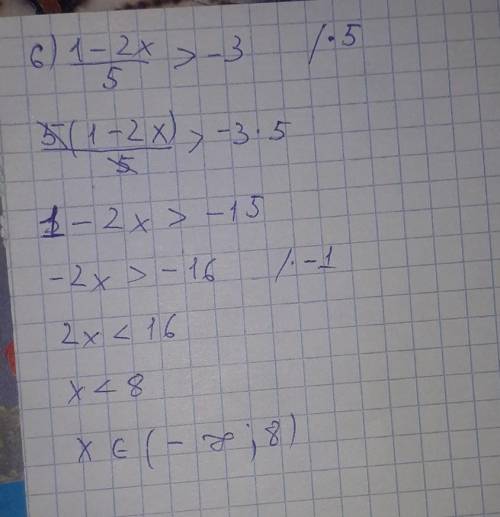 6) (1-2x)/5 > -3 /·5
5(1-2x)/5 > -3·5
1-2x > -15
-2x > -16 /·-1
2x < 16
x < 8
x ∈ (-∞;8)